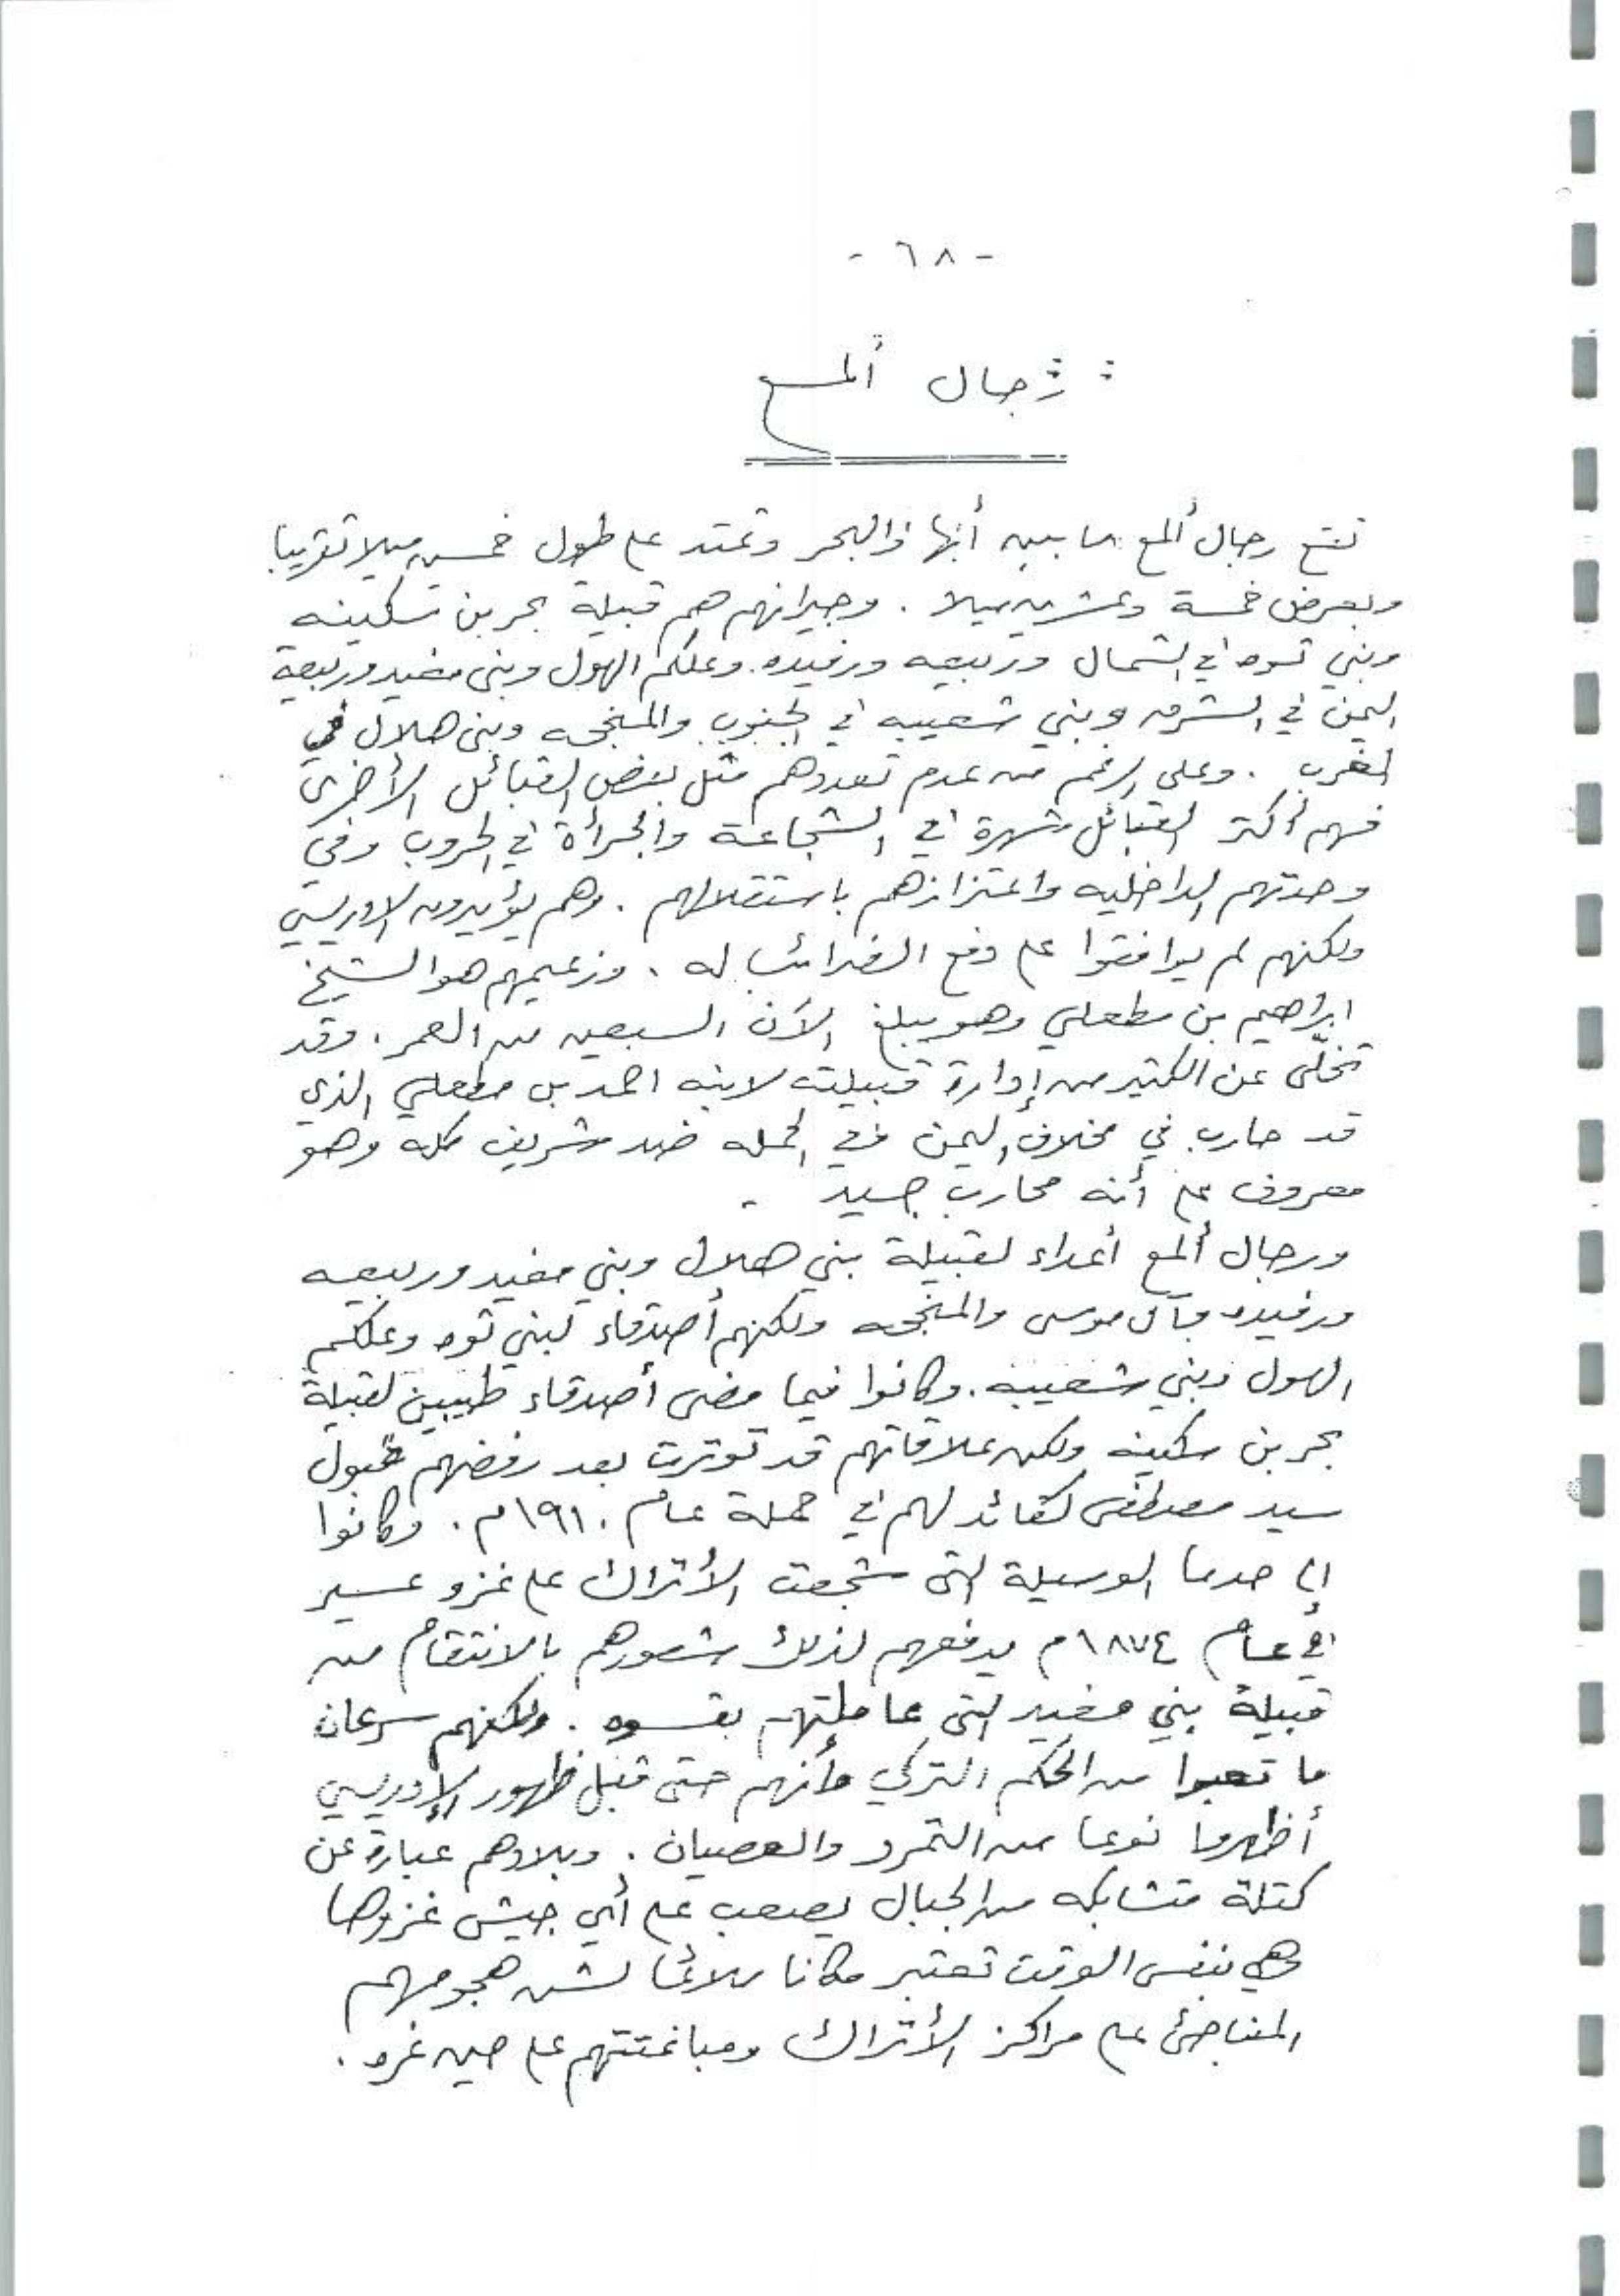 - ٦٨ -
: رجال ألمع
تقع رجال ألمع ما بين أبها والبحر وتمتد على طول خمسين ميلا تقريبا
وبعرض خمسة وعشرين ميلا . وجيرانهم هم قبيلة بحر بن سكينه
وبني ثوه في الشمال وربيعه ورفيده. وعلكم الهول وبنى مغيد وربيعة
اليمن في الشرق وبني شعيبه في الجنوب والمنجحه وبنى هلال في
المغرب . وعلى الرغم من عدم تعددهم مثل بعض القبائل الأخرى
فهم أكثر القبائل شهرة في الشجاعة والجرأة في الحروب وفي
وحدتهم الداخليه واعتزازهم باستقلالهم . وهم يؤيدون الادريسي
ولكنهم لم يوافقوا على دفع الضرائب له . وزعيمهم هو الشيخ
ابراهيم بن مطعلي وهو يبلغ الآن السبعين من العمر . وقد
تخلّى عن الكثير من إدارة قبيلته لابنه احمد بن مطعلي الذي
قد حارب في مخلاف اليمن في الحمله ضد شريف مكه وهو
معروف على أنه محارب جسيد .
ورجال ألمع أعداء لقبيلة بني هلال وبني مغيد وربيعه
ورفيده وآل موسى والمنجحه ولكنهم أصدقاء لبني ثوه وعلكم
الهول وبني شعيبه . وكانوا فيما مضى أصدقاء طيبين لقبيلة
بحر بن سكينه ولكن علاقاتهم قد توترت بعد رفضهم قبول
سيد مصطفى كقائد لهم في حملة عام ١٩١٠م . وكانوا
إلى حد ما الوسيلة التى شجعت الأتراك على غزو عسير
في عام ١٨٧٤م يدفعهم لذلك شعورهم بالانتقام من
قبيلة بني مغيد التى عاملتهم بقسوه . ولكنهم سرعان
ما تعبوا من الحكم التركي وأنهم حتى قبل ظهور الإدريسي
أظهروا نوعا من التمرد والعصيان . وبلادهم عبارة عن
كتلة متشابكه من الجبال يصعب على أي جيش غزوها
وهي بنفس الوقت تعتبر مكانا ملائما لشن هجومهم
المفاجئ على مراكز الأتراك ومباغتتهم على حين غره .